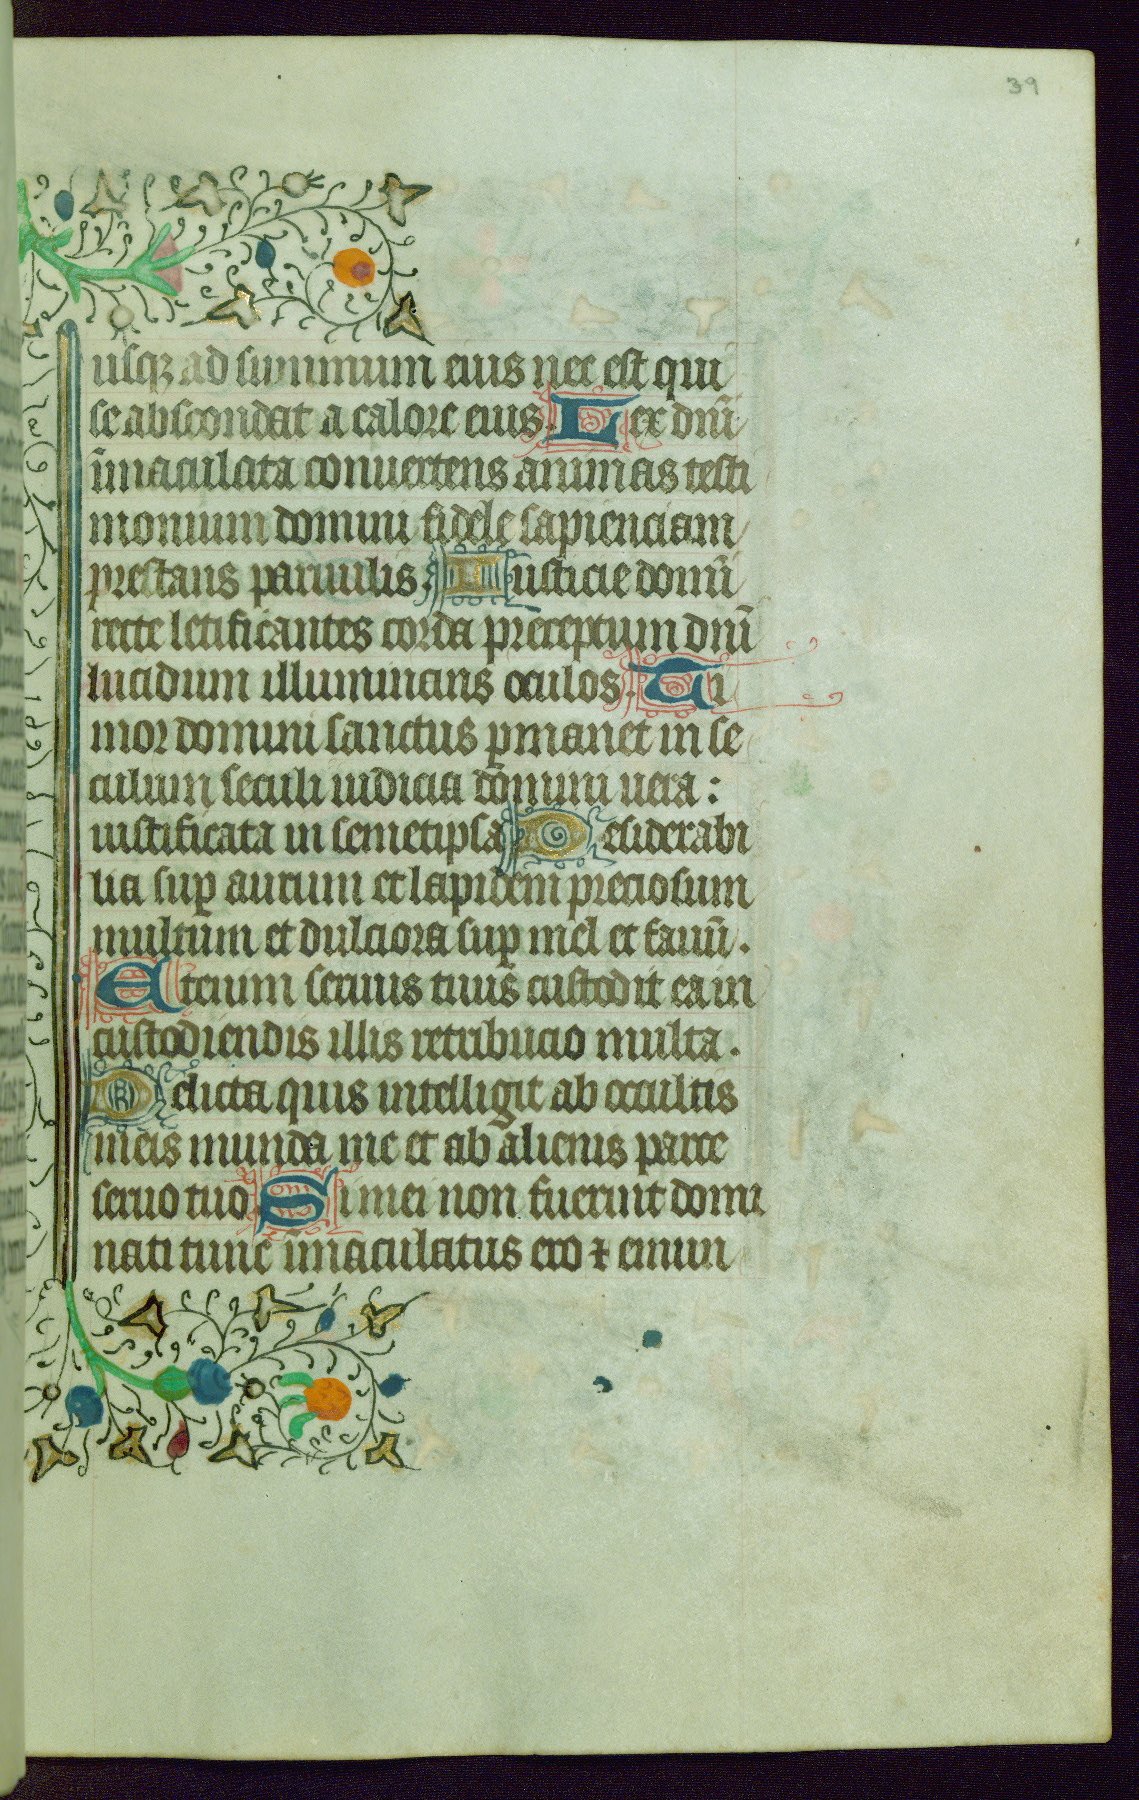 39
usqꝫ ad summum eius nec est qui
se abscondat a calore eius. Lex dnī
īmaculata conuertens animas testi
monium domini fidele sapienciam
prestans paruulis: Iusticie domī
recte letificantes corda preceptum dnī
lucidum illuminans oculos. Ti
mor domini sanctus ꝑmanet in se
culum seculi iudicia domini uera:
iustificata in semetipsa Desiderabi
lia suꝑ aurum et lapidem preciosum
multum et dulciora suꝑ mel et fauū.
Etenim seruus tuus custodit ea in
custodiendis illis retribucio multa.
Delicta quis intelligit ab occultis
meis munda me et ab alienis parce
seruo tuo Si mei non fuerint domi
nati tunc imaculatus ero ⁊ emun